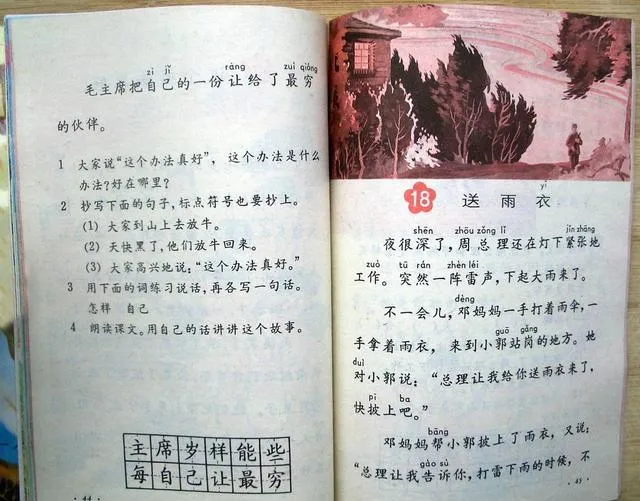 zì jǐ ràng zuì qióng
毛主席把自己的一份让给了最穷
的伙伴。
1 大家说“这个办法真好”，这个办法是什么
办法?好在哪里?
2 抄写下面的句子，标点符号也要抄上。
(1) 大家到山上去放牛。
(2) 天快黑了，他们放牛回来。
(3) 大家高兴地说：“这个办法真好。”
3 用下面的词练习说话，再各写一句话。
怎样 自己
4 朗读课文。用自己的话讲讲这个故事。
主席岁样能些
每自己让最穷
· 44 ·
yī
18 送雨衣
shēn zhōu zǒng lǐ jǐn zhāng
夜很深了，周总理还在灯下紧张地
zuò tū rán zhèn léi
工作。突然一阵雷声，下起大雨来了。
dèng
不一会儿，邓妈妈一手打着雨伞，一
guō gǎng
手拿着雨衣，来到小郭站岗的地方。她
duì
对小郭说：“总理让我给你送雨衣来了，
pī ba
快披上吧。”
bāng
邓妈妈帮小郭披上了雨衣，又说：
gào sù
“总理让我告诉你，打雷下雨的时候，不
· 45 ·